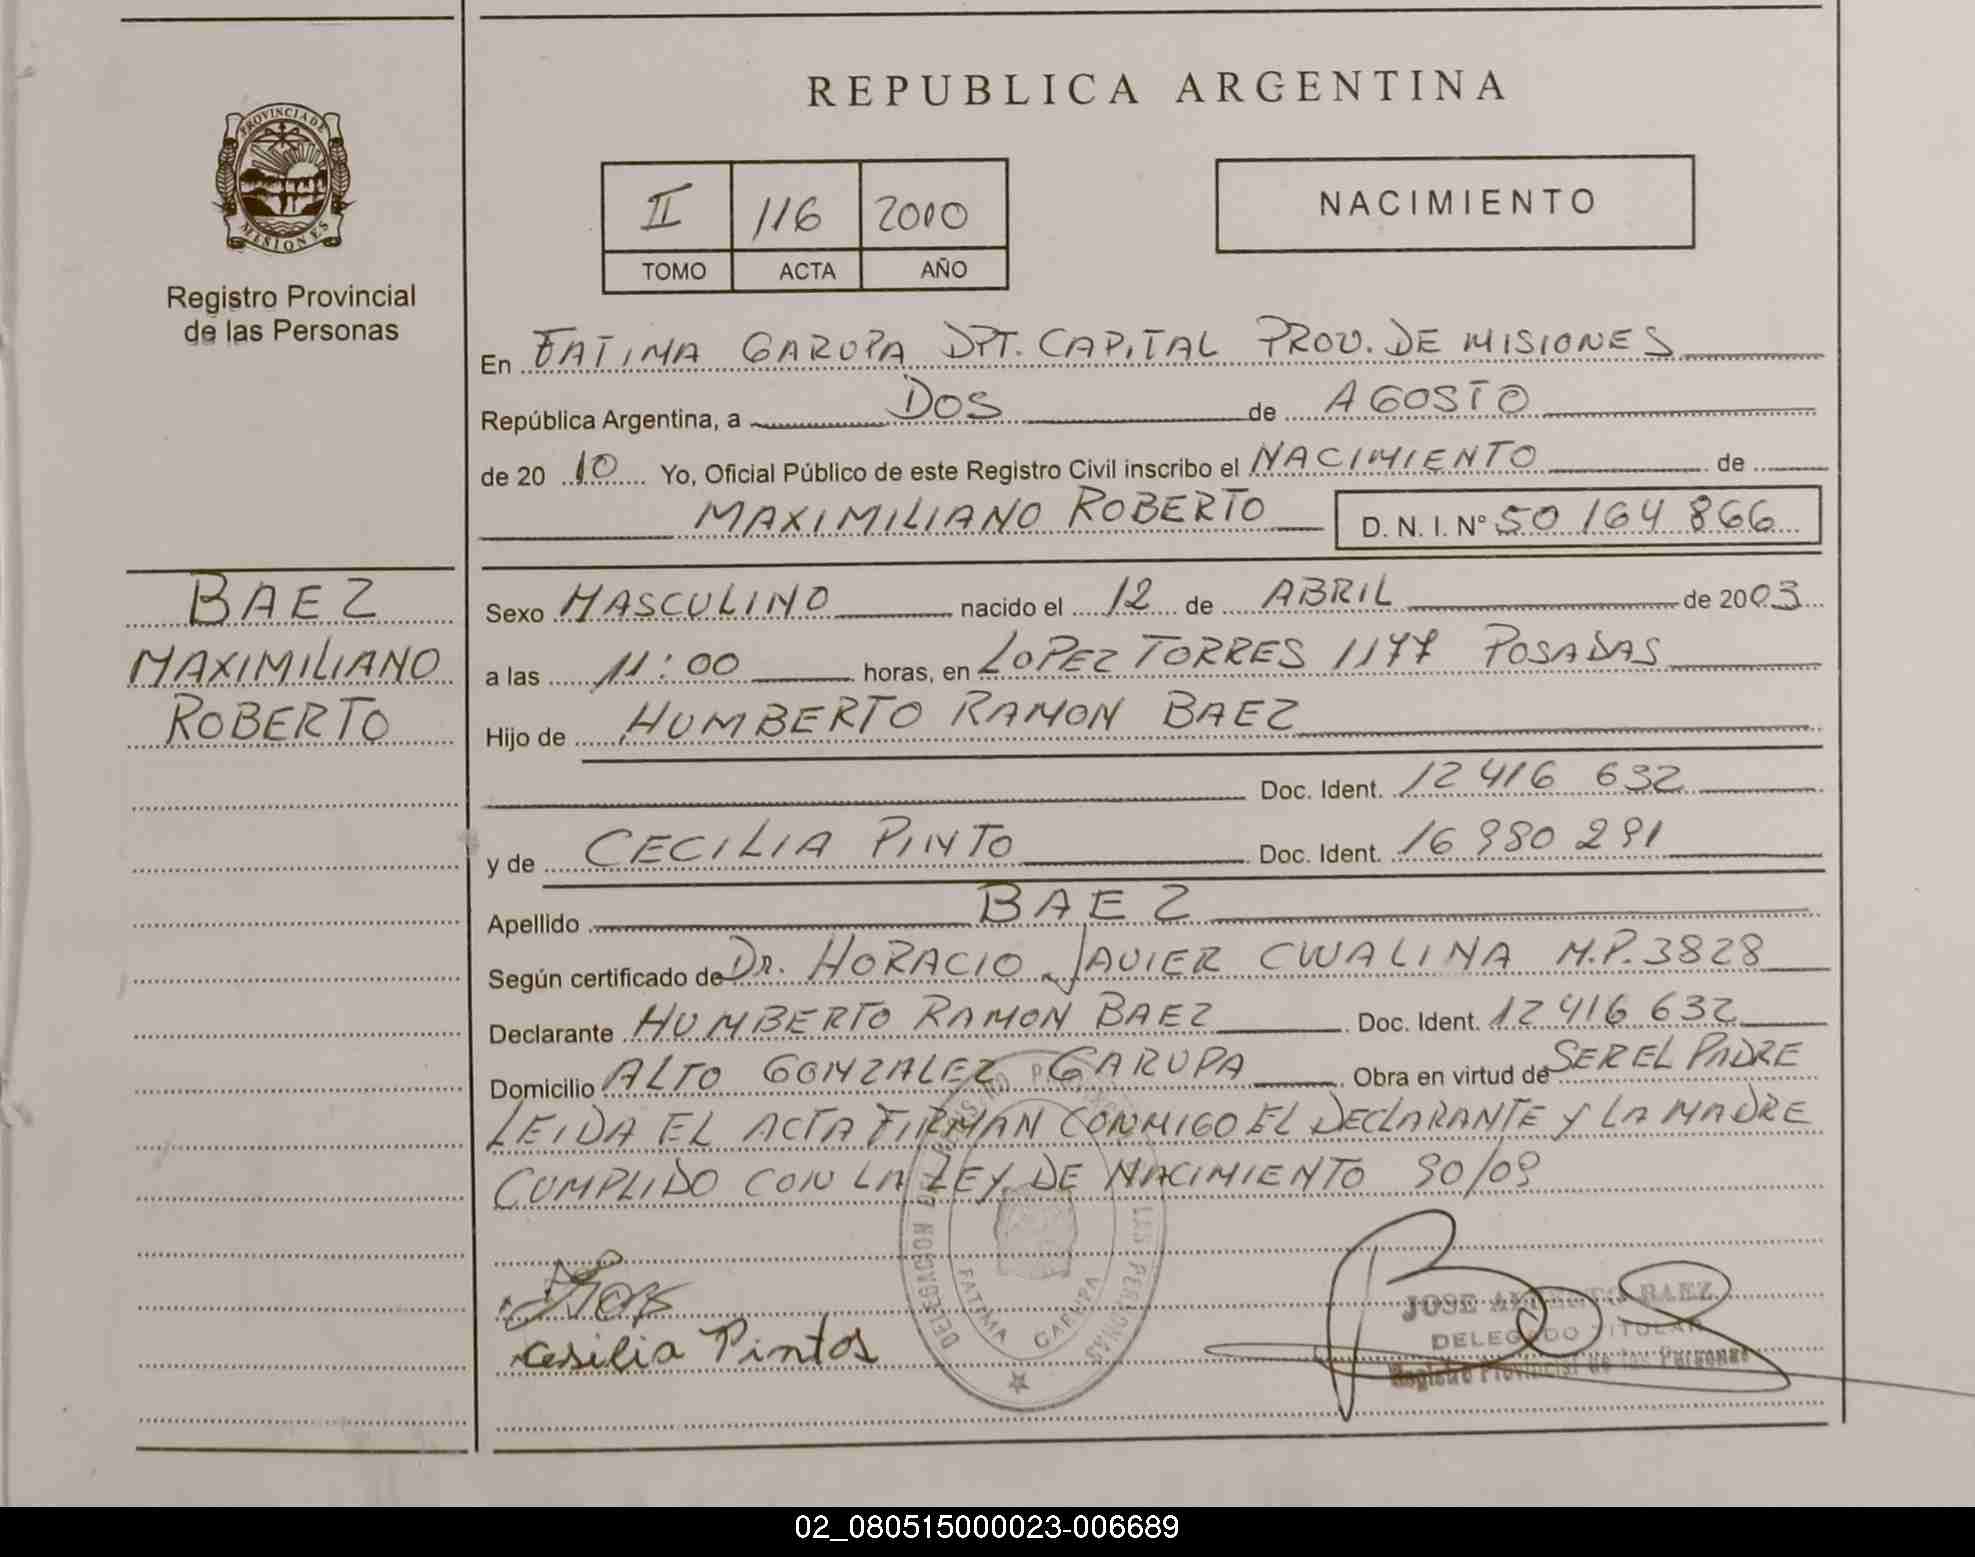 REPUBLICA ARGENTINA
PROVINCIA DE
MISIONES
Registro Provincial
de las Personas
II 116 2010
TOMO ACTA AÑO
NACIMIENTO
En FATIMA GARUPA DPT. CAPITAL PROV. DE MISIONES
República Argentina, a DOS de AGOSTO
de 2010 Yo, Oficial Público de este Registro Civil inscribo el NACIMIENTO de
MAXIMILIANO ROBERTO D. N. I. Nº 50 164 866
BAEZ
MAXIMILIANO
ROBERTO
Sexo MASCULINO nacido el 12 de ABRIL de 2003
a las 11:00 horas, en LOPEZ TORRES 1177 POSADAS
Hijo de HUMBERTO RAMON BAEZ
Doc. Ident. 12 416 632
y de CECILIA PINTO Doc. Ident. 16 980 291
Apellido BAEZ
Según certificado de DR. HORACIO JAVIER CWALINA M.P. 3828
Declarante HUMBERTO RAMON BAEZ Doc. Ident. 12 416 632
Domicilio ALTO GONZALEZ GARUPA Obra en virtud de SER EL PADRE
LEIDA EL ACTA FIRMAN CONMIGO EL DECLARANTE Y LA MADRE
CUMPLIDO CON LA LEY DE NACIMIENTO 90/09
cesilia Pintos
FATIMA GARUPA
JOSE BAEZ
DELEGADO TITULAR
Registro Provincial de las Personas
02_080515000023-006689